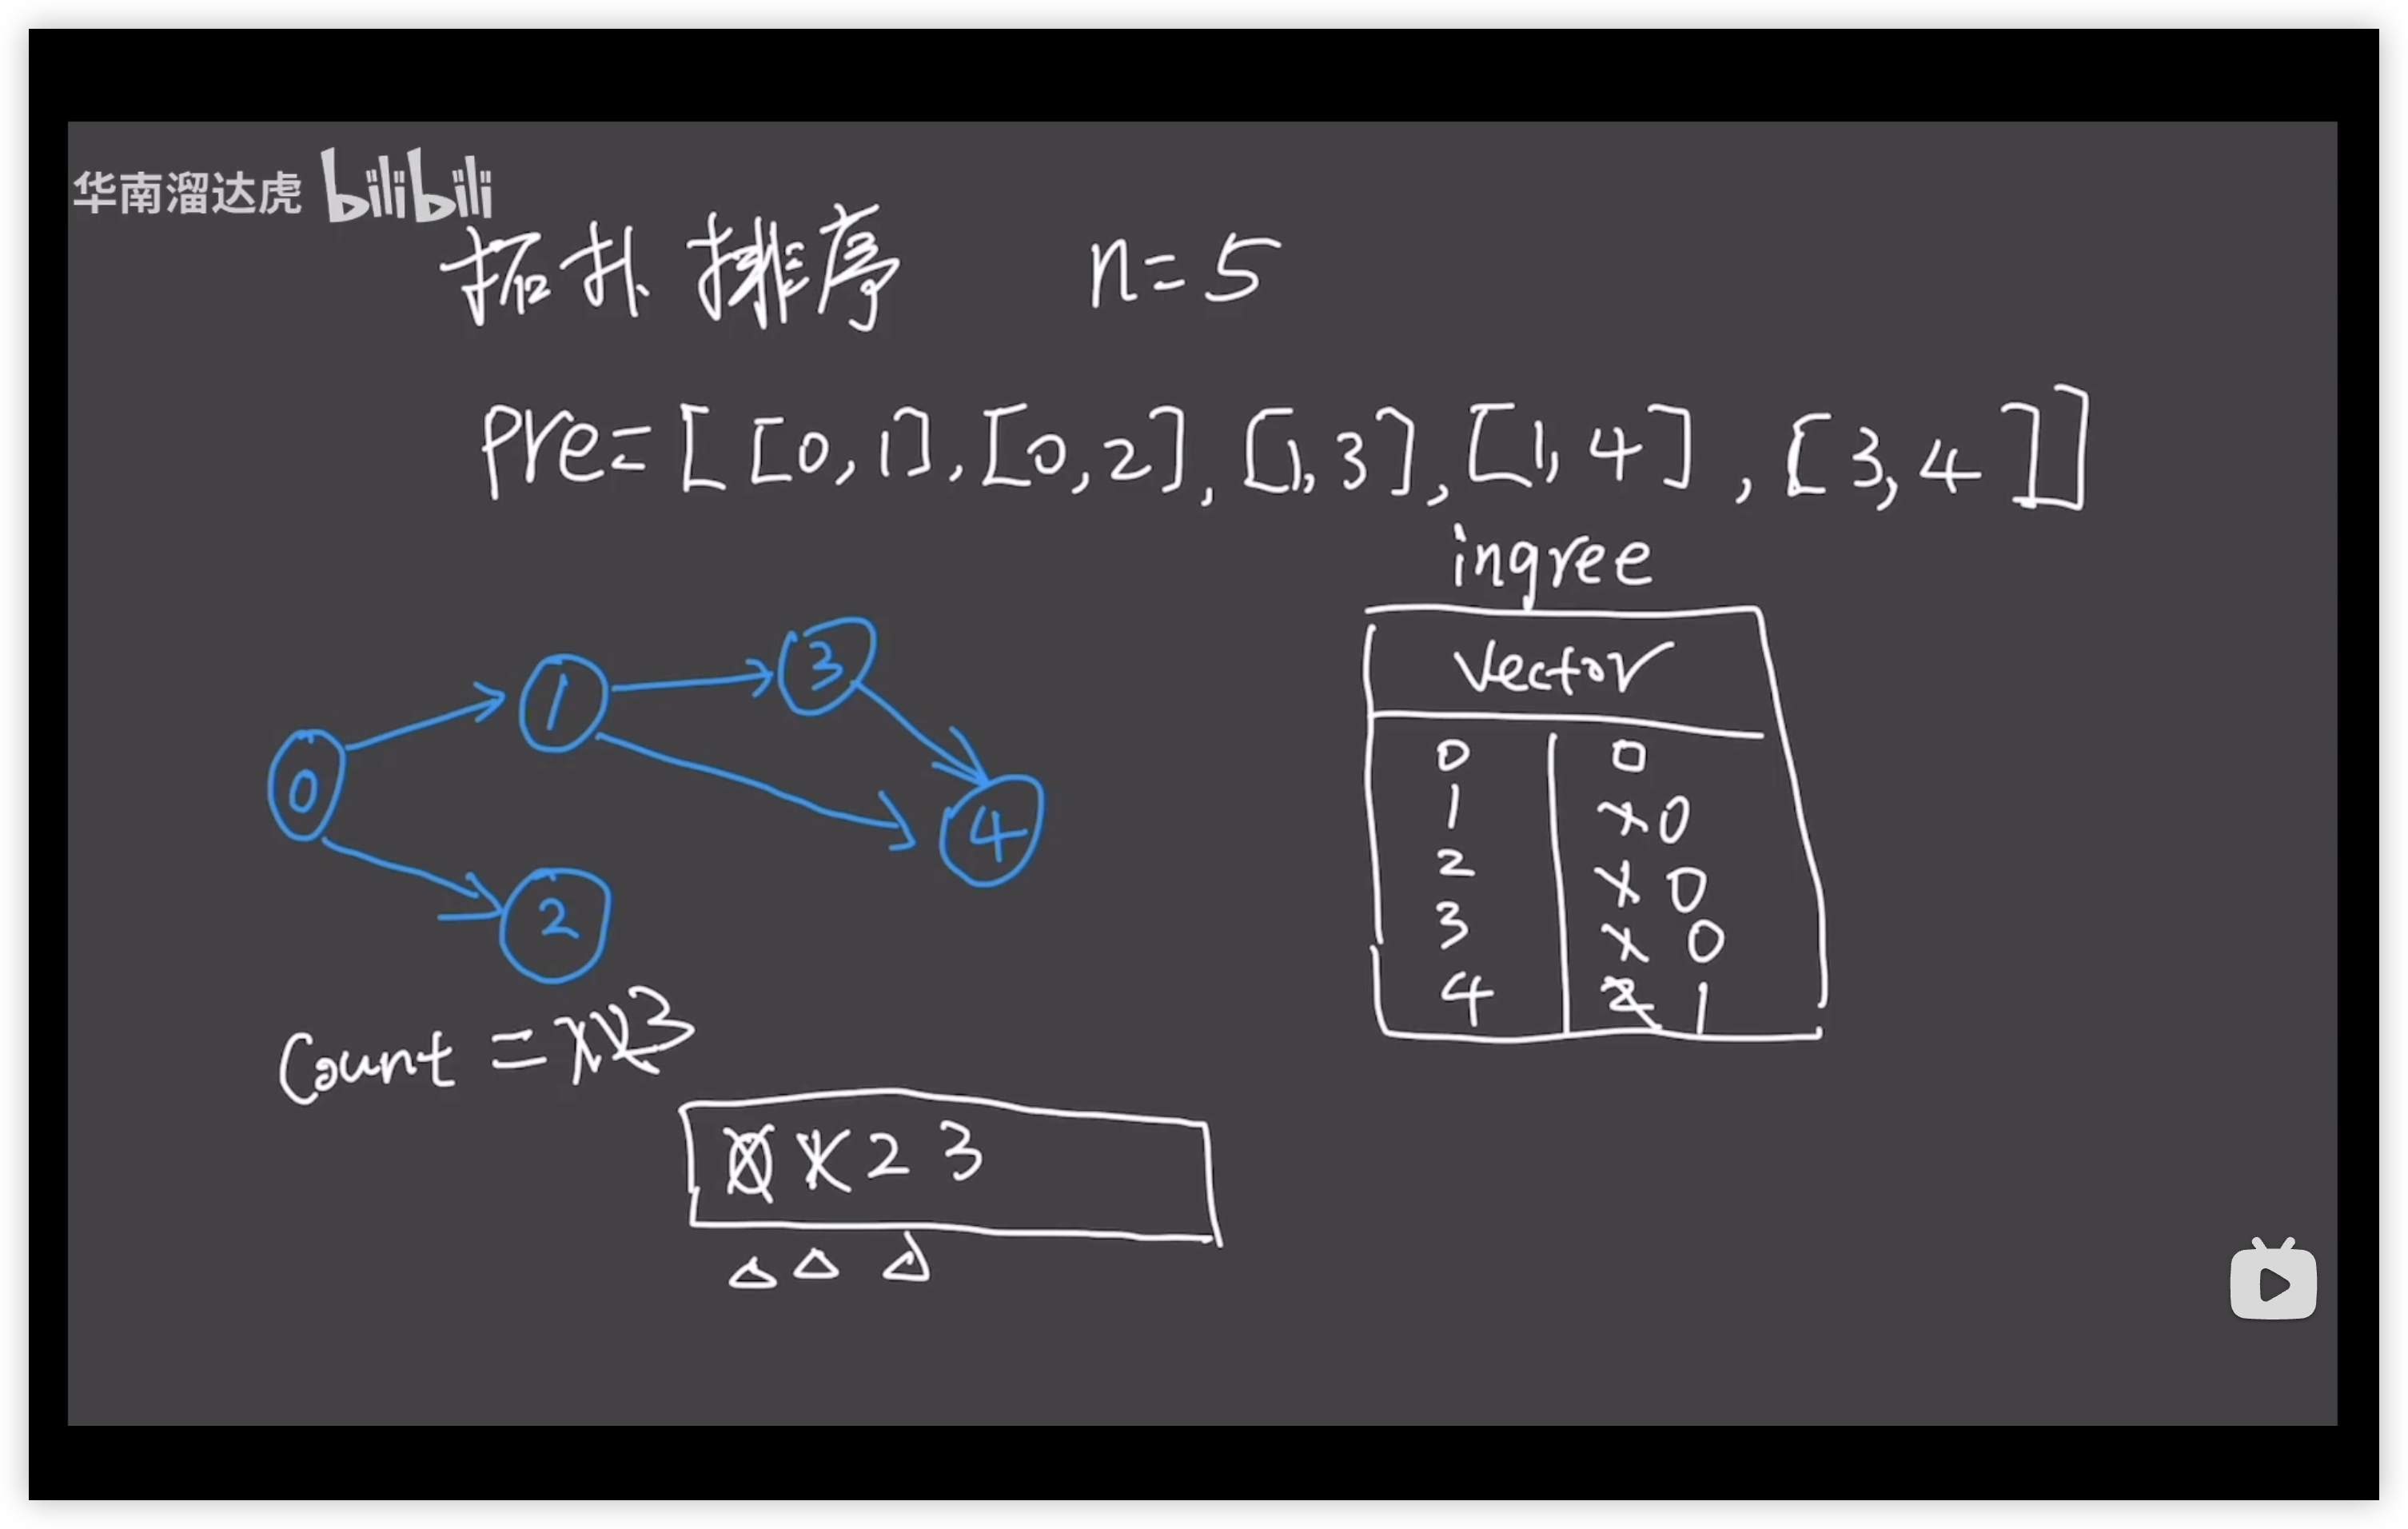 华南溜达虎 bilibili
拓扑排序 n=5
Pre=[[0,1],[0,2],[1,3],[1,4],[3,4]]
ingree
vector
0 0
1 0
2 0
3 0
4 2 1
0
1
3
4
2
Count = 3
0 2 3